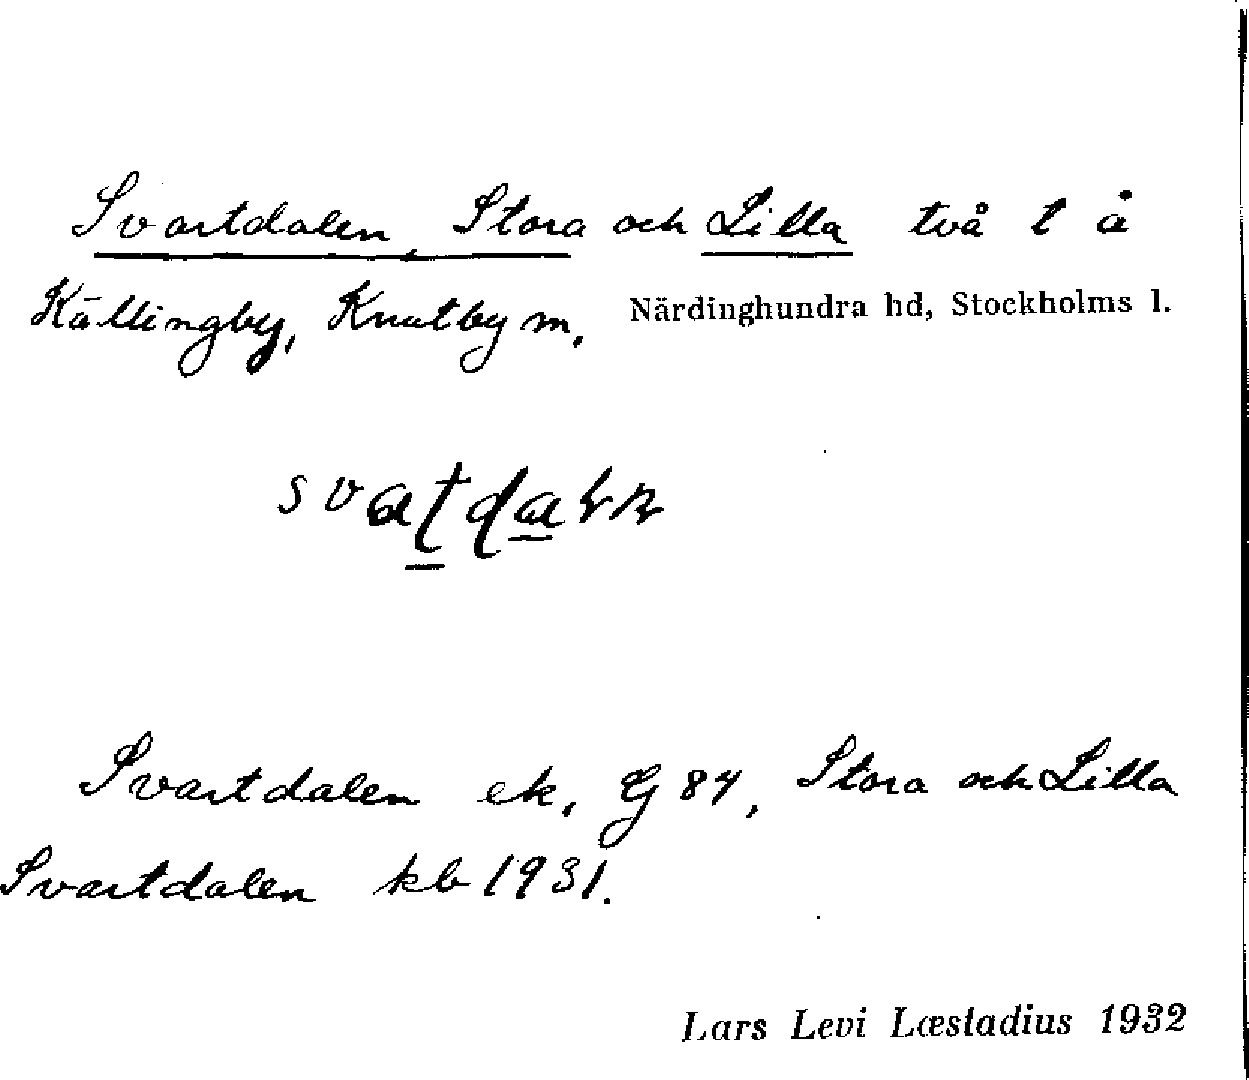 Svartdalen, Stora och Lilla två t å
Källingby, Knutby sn, Närdinghundra hd, Stockholms l.
Svartdalen ek, G 84, Stora och Lilla
Svartdalen kb 1931.
Lars Levi Læstadius 1932